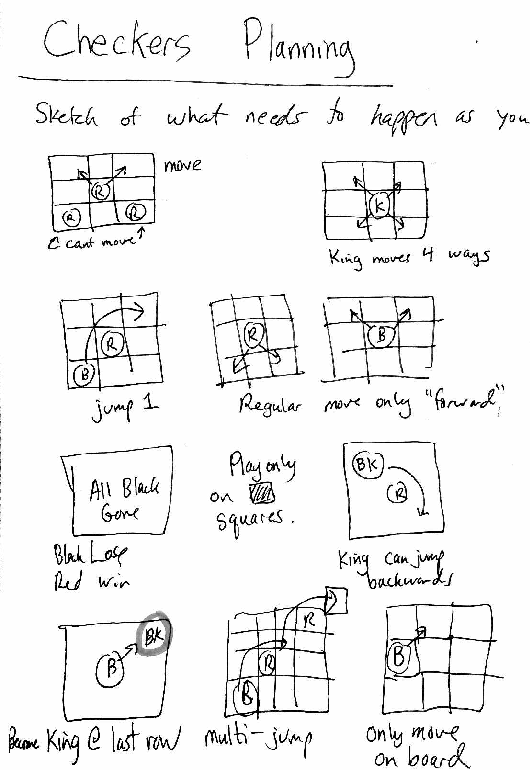 Checkers Planning
Sketch of what needs to happen as you
move
R
R
R
can't move
K
King moves 4 ways
R
B
jump 1
R
B
Regular move only "forward"
All Black
Gone
Black Lose
Red win
Play only
on
squares.
BK
R
King can jump
backwards
BK
B
Become King @ last row
R
R
B
multi-jump
B
Only move
on board